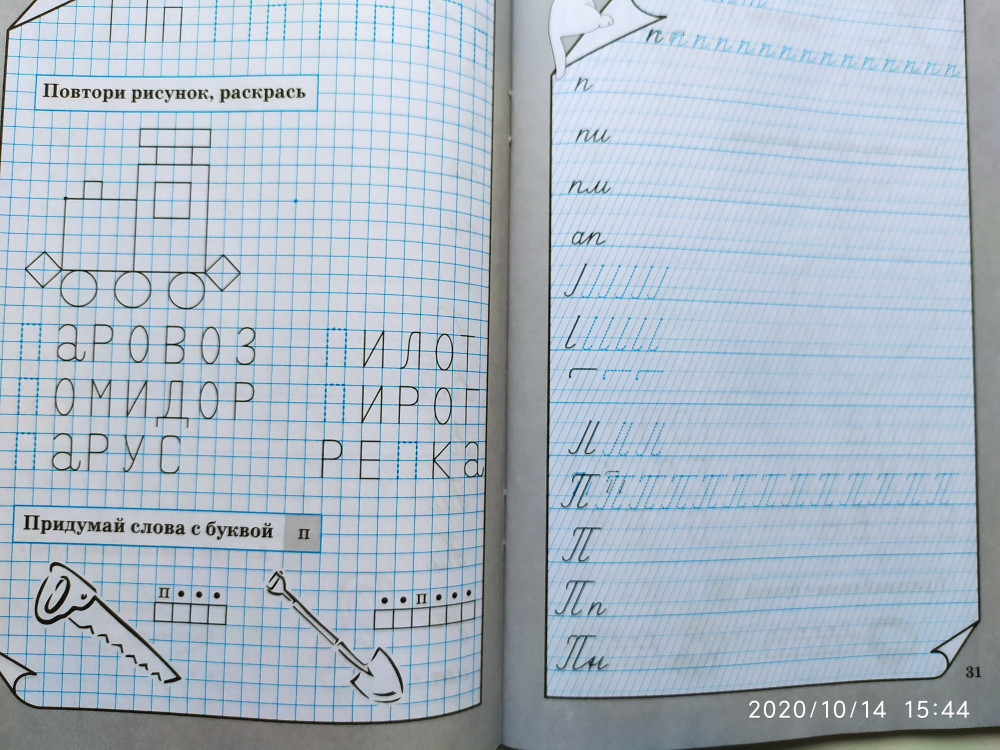 Повтори рисунок, раскрась
паровоз пилот
помидор пирог
парус репка
Придумай слова с буквой п
п • • •
• • п • • •
п п п п п п п п п п п п п п п
п
пи
пм
ап
П П П П П П П П П П П П П
П
П п
Пн
31
2020/10/14 15:44